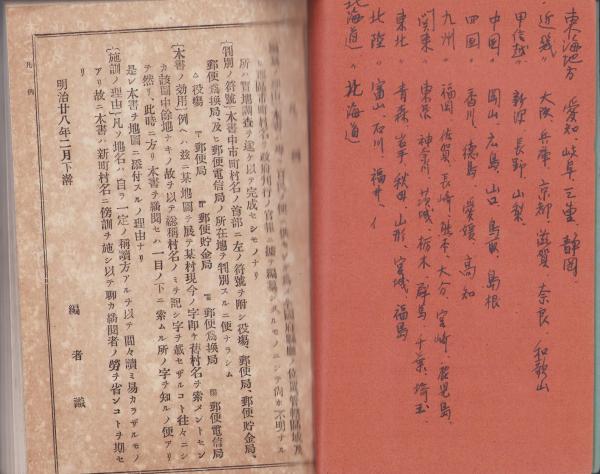 東海地方 愛知、岐阜、三重、静岡、
近畿〃 大阪、兵庫、京都、滋賀、奈良、和歌山
甲信越〃 新潟、長野、山梨、
中国〃 岡山、広島、山口、鳥取、島根
四国〃 香川、徳島、愛媛、高知
九州〃 福岡、佐賀、長崎、熊本、大分、宮崎、鹿児島、
関東〃 東京、神奈川、茨城、栃木、群馬、千葉、埼玉、
東北〃 青森、岩手、秋田、山形、宮城、福島
北陸〃 富山、石川、福井、
北海道〃 北海道
凡例
所ハ實地調査ヲ遂ケ以テ完成セシモノナリ
〔判別ノ符號〕本書中市町村名ノ首部ニ左ノ符號ヲ附シ役場、郵便局、郵便貯金局、
郵便爲換局、及ヒ郵便電信局ノ所在地ヲ判別スルニ便ナラシム
役場 郵便局 郵便貯金局 郵便爲換局 郵便電信局
〔本書ノ効用〕例ヘハ茲ニ某地圖ヲ展テ某村現今ノ字即ケ舊村名ヲ索メントセン
カ該圖中餘地ナキノ故ヲ以テ總稱村名ノミヲ記シ字ヲ載セザルコト往々ニシ
テ然リ、此時ニ方リ本書ヲ繙閱セハ一目ノ下ニ索ムル所ノ字ヲ知ルノ便アリ
是レ本書ヲ地圖ニ添付スルノ理由ナリ
〔施訓ノ理由〕凡ソ地名ハ自ラ一定ノ稱讀方アルヲ以テ間々讀ミ易カラザルモノ
アリ故ニ本書ハ新町村名ニ傍訓ヲ施シ以テ聊カ繙閱者ノ勞ヲ省ンコトヲ期セ
リ
明治廿八年二月下澣
編者識